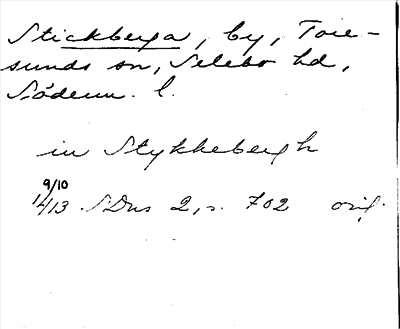 Stickberga, by, Tore-
sunds sn, Selebo hd,
Söderm. l.
in Stykkebergh
9/10
1413 SDns 2, s. 702 orig.